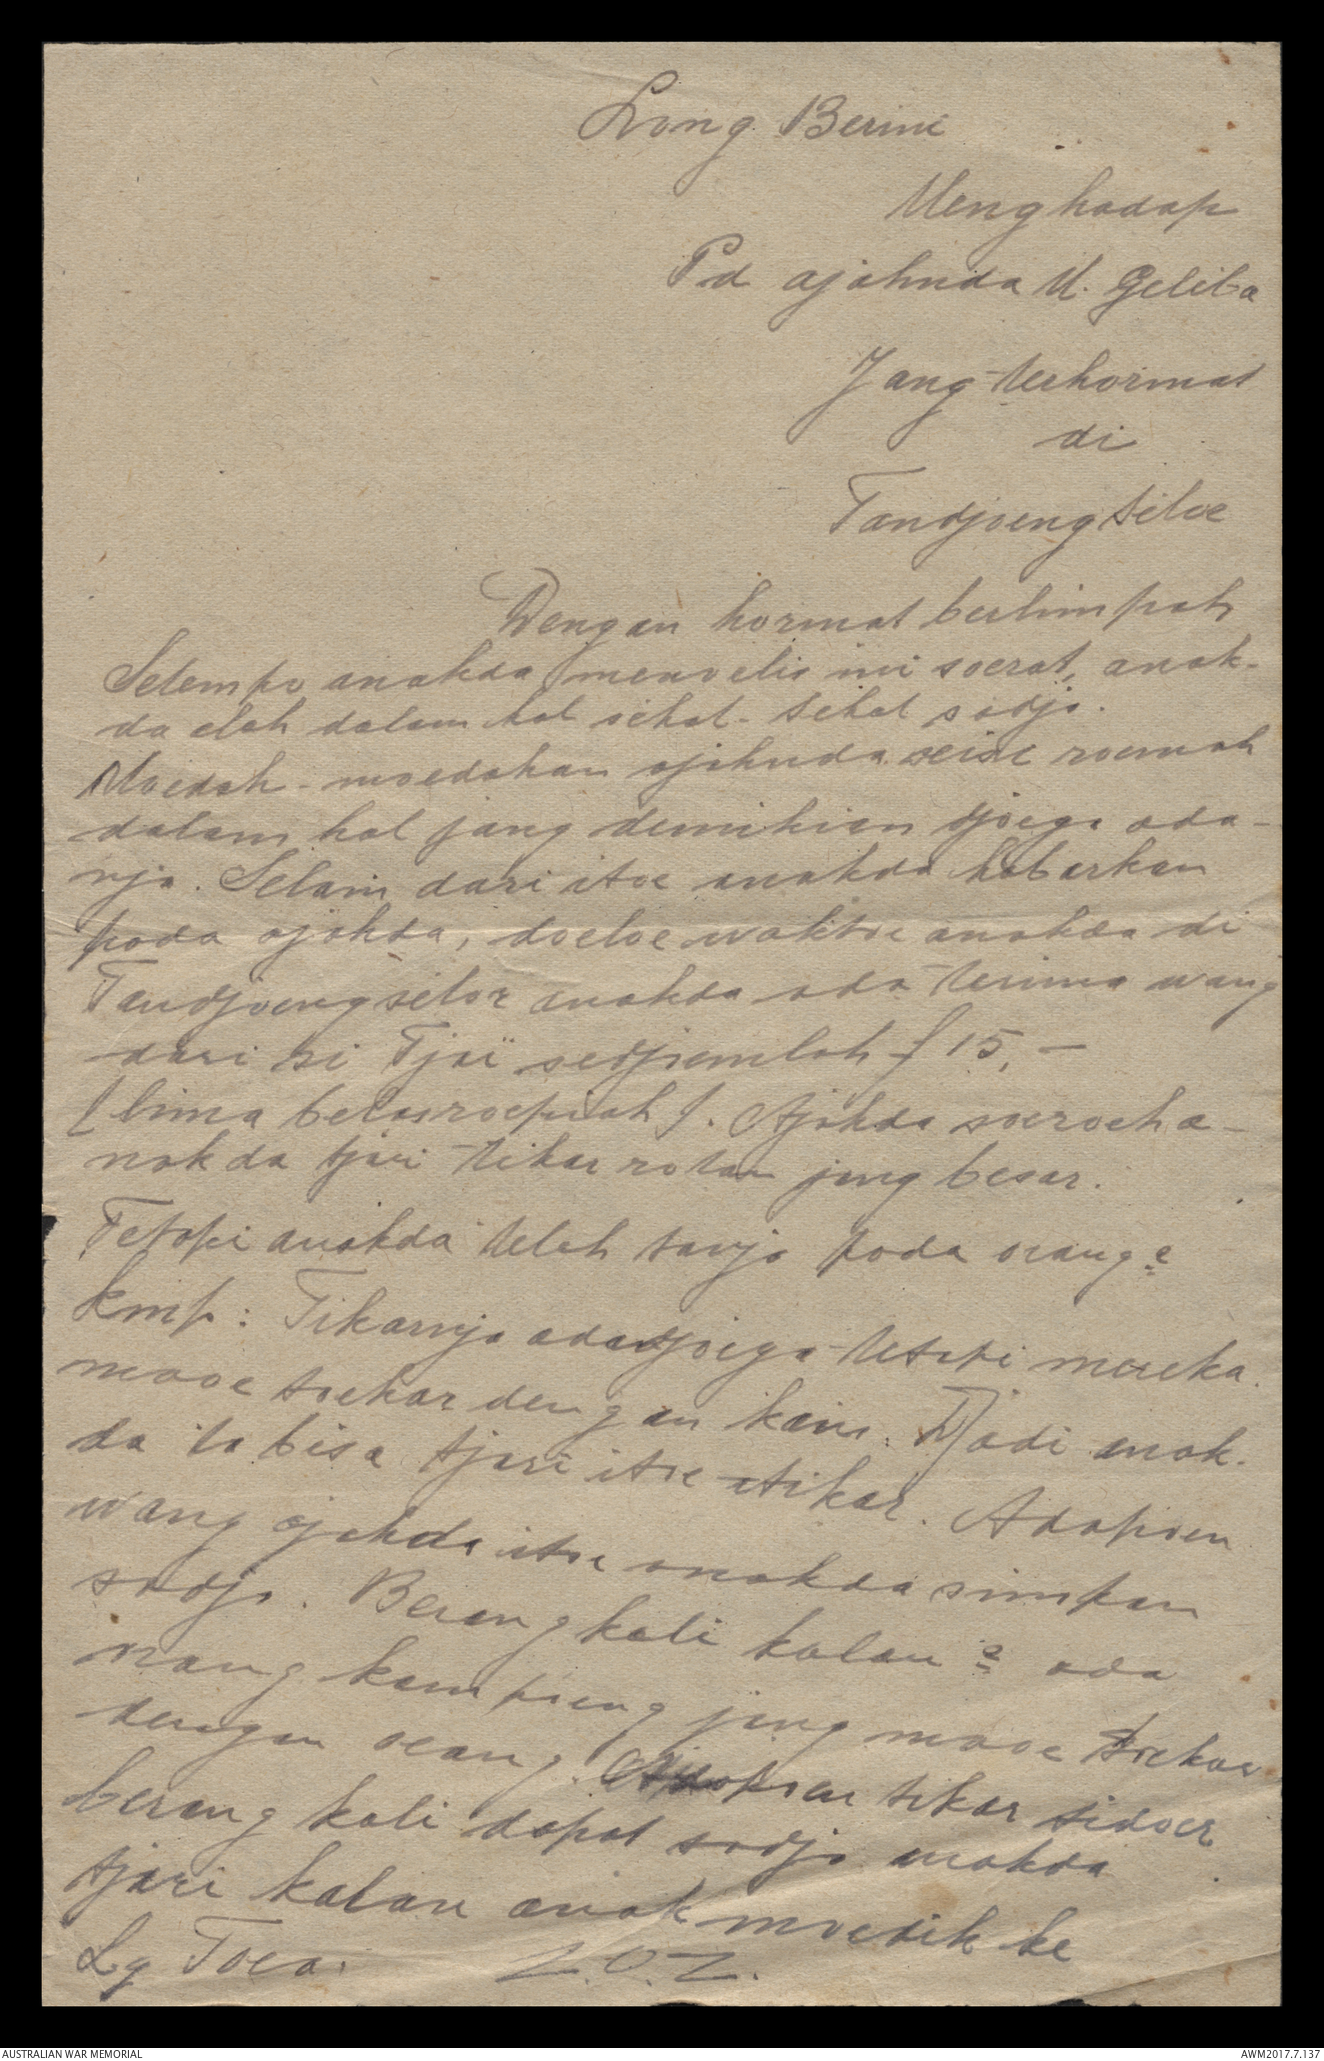 Long Berini
Menghadap
Pd ajahnda M. Geliba
Jang terhormat
di
Tandjoeng Seloe
Dengan hormat berlimpah
Selempo anakda menoelis ini soerat, anak-
da elah dalam hal sehat-sehat sadja.
Moedah-moedahan ajahnda seisi roemah
dalam hal jang demikian djoega ada-
nja. Selain dari itoe anakda kabarkan
pada ajahda, doeloe waktoe anakda di
Tandjoeng selor anakda ada terima wang
dari si Tjai sedjoemlah f 15,-
[lima belas roepiah]. Ajahda soeroeh a-
nakda tjari tikar rotan jang besar.
Tetapi anakda telah tanja pada orang2
kmp: Tikarnja ada djoega tetapi mereka
maoe toekar dengan kain. Djadi anak-
da ta bisa tjari itoe tikar. Adapoen
wang ajahda itoe anakda simpan
sadja. Berangkali kalau2 ada
orang kampoeng jang maoe toekar
dengan oeang. tikar tidoer
berang kali dapat sadja anakda
tjari kalau anak moedik ke
Lg Toea. Z.O.Z.
AUSTRALIAN WAR MEMORIAL
AWM2017.7.137